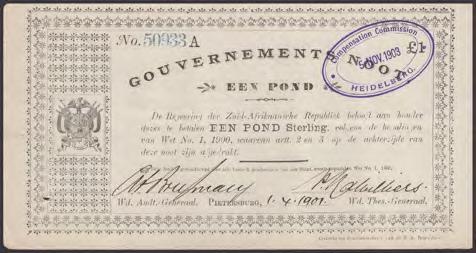 No. 50933 A
£1
GOUVERNEMENTS NOOT
Compensation Commission
5 NOV. 1903
HEIDELBERG.
EEN POND
De Regeering der Zuid-Afrikaansche Republiek belooft aan houder
dezes te betalen EEN POND Sterling, volgens de bepalingen
van Wet No. 1, 1900, waarvan artt. 2 en 3 op de achterzijde van
deze noot zijn afgedrukt.
Wd. Audt.-Generaal. PIETERSBURG, 1.4.1901. Wd. Thes.-Generaal.